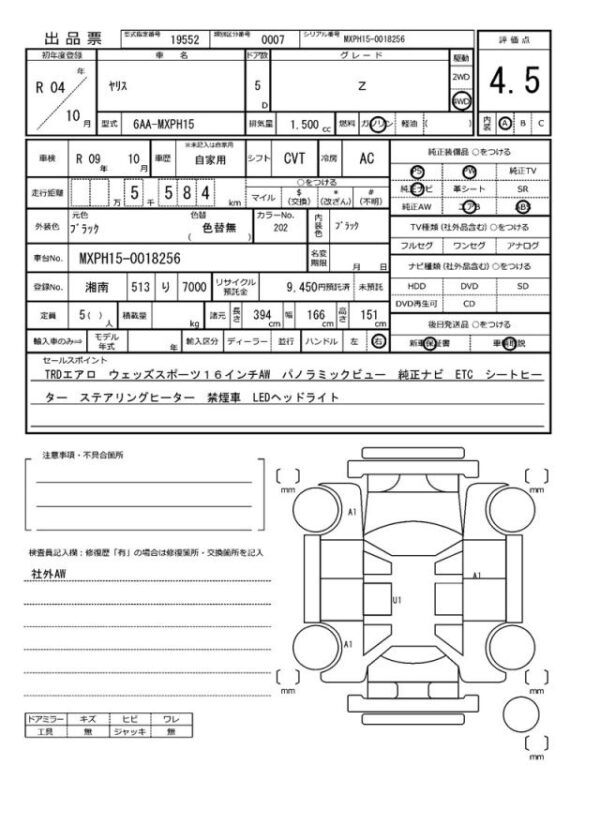 出品票 型式指定番号 19552 類別区分番号 0007 シリアル番号 MXPH15-0018256 評価点
初年度登録 車名 ドア数 グレード 駆動
R 04 年 10 月 ﾔﾘｽ 5 D Z 2WD 4WD 4.5
型式 6AA-MXPH15 排気量 1,500 cc 燃料 ガソリン 軽油 ( ) 内装 A B C
車検 R 09 年 10 月 車歴 ※未記入は自家用 自家用 シフト CVT 冷房 AC 純正装備品 ○をつける
PS PW 純正TV
走行距離 万 5 千 5 8 4 km ○をつける マイル $ (交換) * (改ざん) # (不明) 純正ナビ 革シート SR
純正AW エアB ABS
外装色 元色 ﾌﾞﾗｯｸ 色替 ( 色替無 ) カラーNo. 202 内装色 ﾌﾞﾗｯｸ TV種類(社外品含む)○をつける
フルセグ ワンセグ アナログ
車台No. MXPH15-0018256 名変期限 月 日 ナビ種類(社外品含む)○をつける
登録No. 湘南 513 り 7000 リサイクル預託金 9,450円預託済 未預託 HDD DVD SD
DVD再生可 CD
定員 5( ) 人 積載量 kg 諸元 長さ 394 cm 幅 166 cm 高さ 151 cm 後日発送品 ○をつける
輸入車のみ⇒ モデル年式 年 輸入区分 ディーラー 並行 ハンドル 左 右 新車保証書 車輌取説
セールスポイント
TRDエアロ ウェッズスポーツ１６インチAW パノラミックビュー 純正ナビ ETC シートヒー
ター ステアリングヒーター 禁煙車 LEDヘッドライト
注意事項・不具合箇所
検査員記入欄：修復歴「有」の場合は修復箇所・交換箇所を記入
社外AW
ドアミラー キズ ヒビ ワレ
工具 無 ジャッキ 無
( ) mm
( ) mm
A1
A1
U1
A1
( ) mm
( ) mm
( ) mm